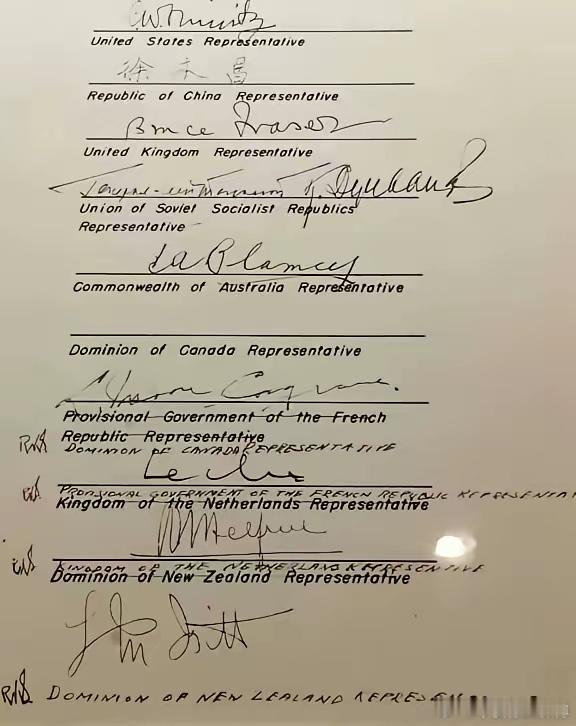 C.W. Nimitz
United States Representative
徐永昌
Republic of China Representative
Bruce Fraser
United Kingdom Representative
Union of Soviet Socialist Republics
Representative
Commonwealth of Australia Representative
Dominion of Canada Representative
Provisional Government of the French
Republic Representative
DOMINION OF CANADA REPRESENTATIVE
PROVISIONAL GOVERNMENT OF THE FRENCH REPUBLIC REPRESENTAT
Kingdom of the Netherlands Representative
KINGDOM OF THE NETHERLAND REPRESENTATIVE
Dominion of New Zealand Representative
DOMINION OF NEW ZEALAND REPRESEN